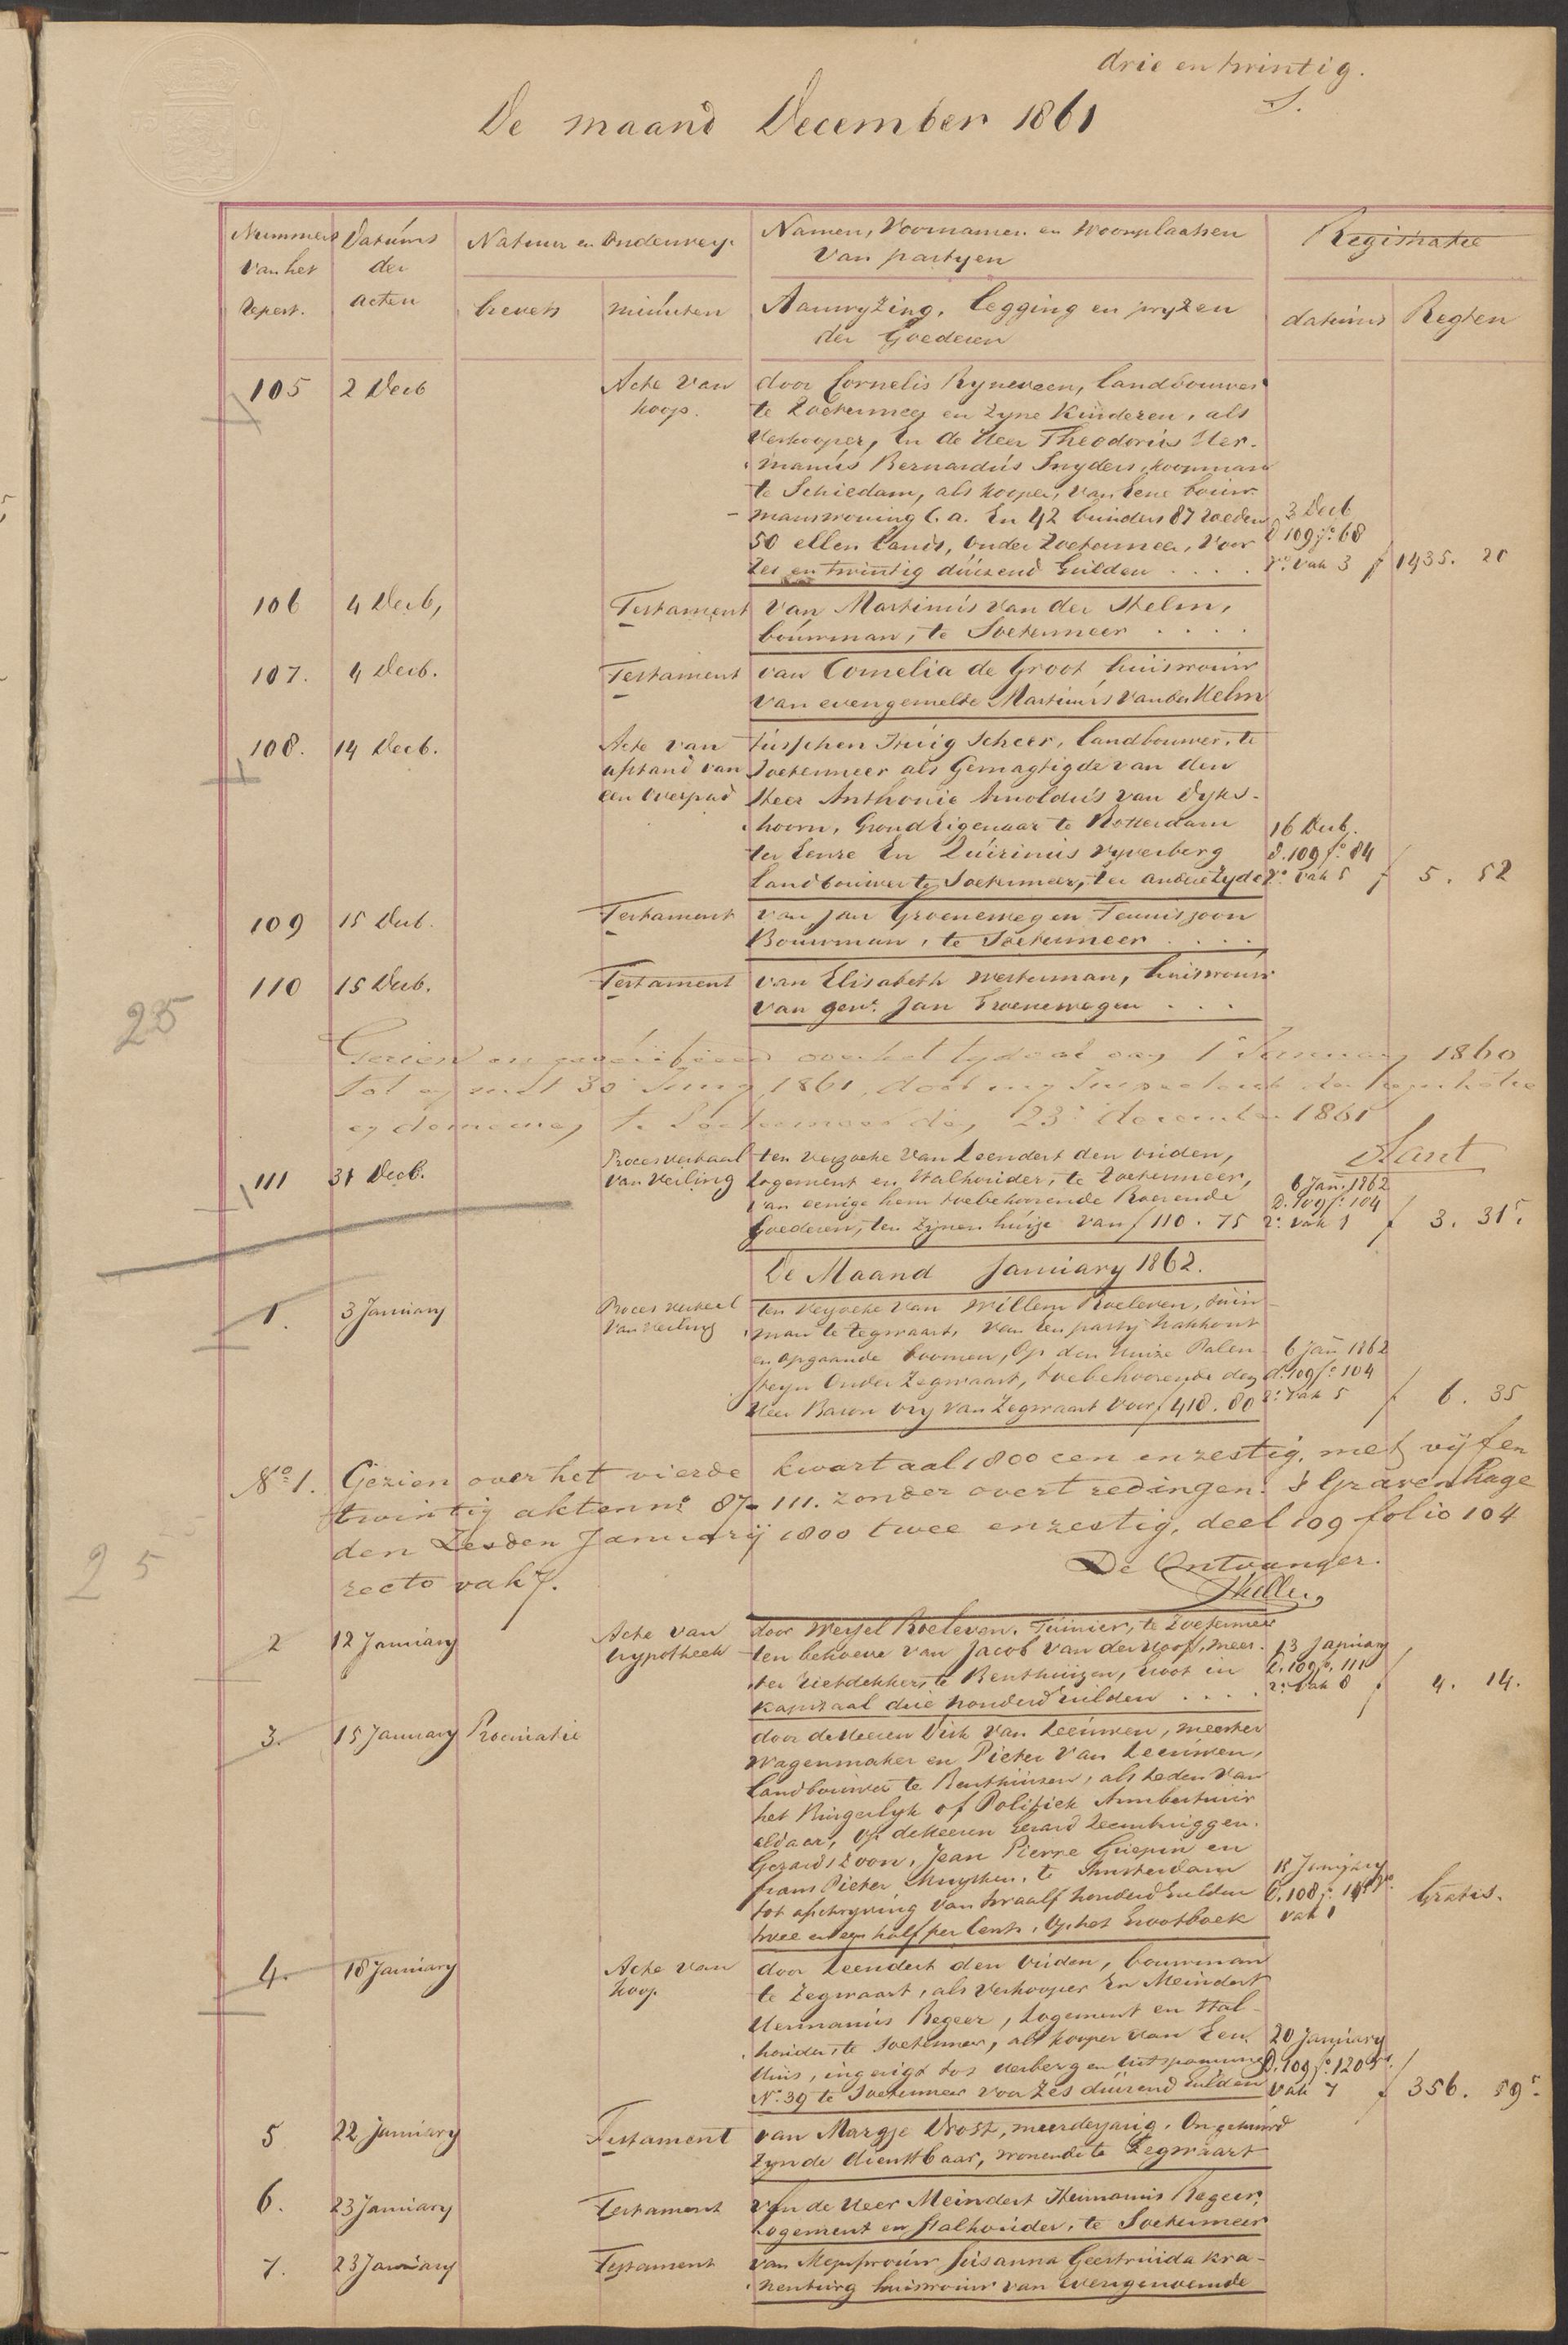 drie en twintig.
De maand December 1861
Nummers van het Repert.
Datums der acten
Natuur en Onderwerp.
brevets
minuten
Namen, Voornamen en Woonplaatsen
van partyen
Aanwyzing, legging en pryzen
der Goederen
Registratie
datums
Regten
105 2 Decb Acte van koop.
door Cornelis Ryneveen, landbouwer
te Zoetermeer en zyne Kinderen, als
Verkooper, En de Heer Theodorus Her-
manus Bernardus Snyders, koopman
te Schiedam, als kooper, van Eene bouw-
manswoning C.a. En 42 bunders 87 roeden
50 ellen lands, onder Zoetermeer, voor
Zes en twintig duizend Gulden . . . .
3 Decb
D 109 fo. 68
ro. vak 3 f 1435. 20
106 4 Decb, Testament van Martinus van der Helm,
bouwman, te Soetermeer . . . .
107. 4 Decb. Testament van Cornelia de Groot huisvrouw
van evengemelde Martinus van der Helm
108. 14 Decb. Acte van afstand van een overpad
tusschen Truig Scheer, landbouwer, te
Soetermeer als Gemagtigde van den
Heer Anthonie Arnoldus van Dyks-
hoorn, Grond Eigenaar te Rotterdam
ter Eenre En Quirinus Vyverberg
Landbouwer te Soetermeer, ter andere Zyde
16 Decb.
D. 109 fo. 84
vo. vak 5 f 5. 52
109 15 Decb. Testament van Jan Groenewegen Teuniszoon
Bouwman, te Soetermeer . . . .
110 15 Decb. Testament van Elisabeth Westerman, huisvrouw
van gen. Jan Groenewegen . . .
25
Gezien en geverifieerd over het tydvak van 1 January 1860
tot en met 30 Juny 1861, door my Inspecteur der
en domeinen te Soetermeer den 23 december 1861
111 31 Decb. Procesverbaal van Veiling
ten Verzoeke van Leendert den Ouden,
logement en Stalhouder, te Zoetermeer,
van eenige hem toebehoorende Roerende
Goederen, ten zynen huize van f 110. 75
6 Jan. 1862
D. 109 fo. 104
ro. vak 1 f 3. 31 5.
De Maand January 1862.
1. 3 January Proces verbaal van veiling
ten Verzoeke van Willem Roeleven, tuin-
man te Zegwaart, van een party hakhout
en opgaande boomen, Op den Huize Palen-
steyn Onder Zegwaart, toebehoorende den
Heer Baron Ory van Zegwaart voor f 418. 80
6 Jan 1862
d. 109 fo. 104
ro. vak 5 f 6. 35
No. 1. Gezien over het vierde kwartaal 1800 een en zestig, met vyf en
twintig akten no. 87-111. zonder overtredingen. 's Gravenhage
den Zesden Januarij 1800 twee en zestig, deel 109 folio 104
recto vak 7.
De Ontvanger.
25
2 12 January Acte van hypotheek
door Wessel Roeleven. Tuinier, te Zoetermeer
ten behoeve van Jacob van der Worp, mees-
ter Rietdekker, te Benthuizen, Groot in
Kapitaal drie honderd Gulden . . . .
13 January
D. 109 fo. 111
ro. vak 8 f 4. 14.
3. 15 January Procuratie
door de Heeren Dirk van Leeuwen, meester
Wagenmaker en Pieter van Leeuwen,
Landbouwer te Benthuizen, als Leden van
het Burgerlyk of Politiek Armbestuur
aldaar, Op de Heeren Gerard
Gerardszoon, Jean Pierre Guepin en
Frans Pieter Muysken, te Amsterdam
tot afschryving van twaalf honderd Gulden
twee en een half per Cents, Op het Grootboek
15 January
D. 108
vak 1 Gratis.
4. 18 January Acte van koop
door Leendert den Ouden, bouwman
te Zegwaart, als Verkooper En Meindert
Hermanus Regeer, Logement en Stal-
houder te Soetermeer, als kooper van Een
Huis, ingerigt tot Herberg en Uitspanning
No. 39 te Soetermeer voor Zes duizend Gulden
20 January
D. 109 fo. 120
vak 7 f 356. 59 5.
5 22 January Testament van Margje Drost, meerderjarig, Ongehuwd
zynde dienstbaar, wonende te Zegwaart
6. 23 January Testament van de Heer Meindert Hermanus Regeer,
Logement en Stalhouder, te Soetermeer
7. 23 January Testament van Mejufvrouw Susanna Geertruida Kra-
nenburg huisvrouw van evengenoemde